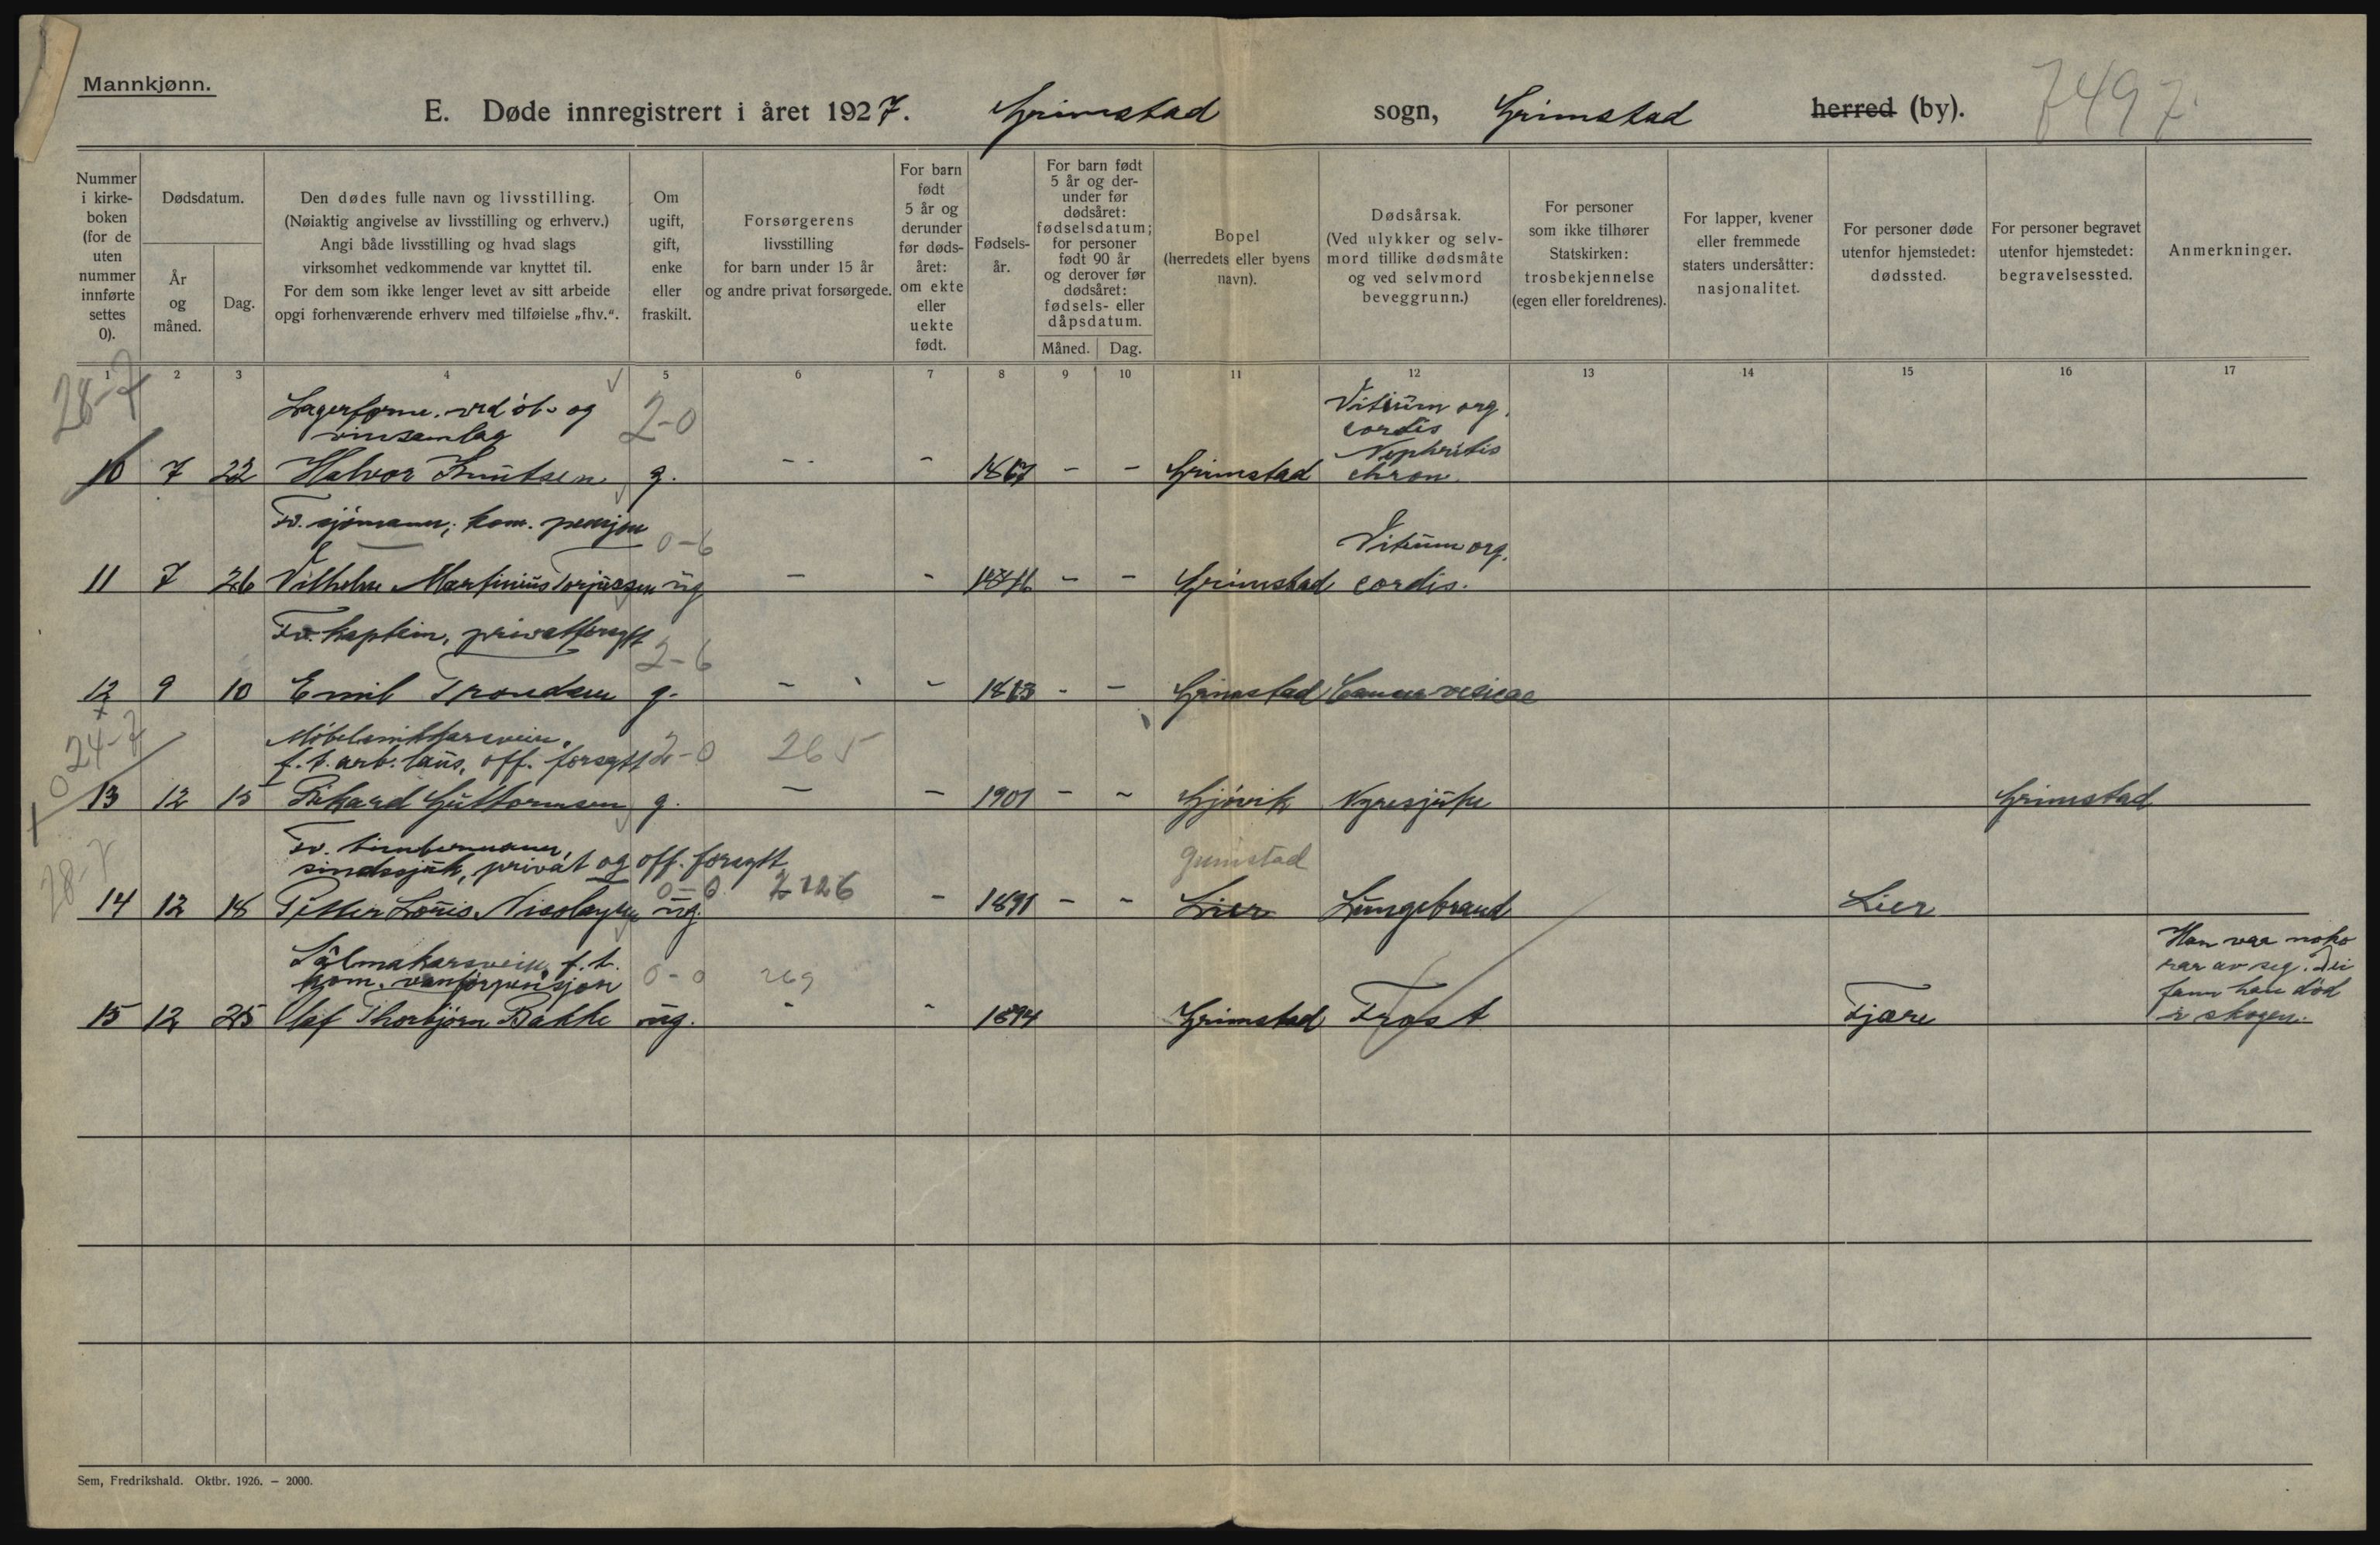 Mannkjønn.
E. Døde innregistrert i året 1927. Grimstad sogn, Grimstad herred (by). 7497
Nummer i kirkeboken (for de uten nummer innførte settes 0).
Dødsdatum.
År og måned.
Dag.
Den dødes fulle navn og livsstilling.
(Nøiaktig angivelse av livsstilling og erhverv.)
Angi både livsstilling og hvad slags
virksomhet vedkommende var knyttet til.
For dem som ikke lenger levet av sitt arbeide
opgi forhenværende erhverv med tilføielse „fhv.“.
Om ugift, gift, enke eller fraskilt.
Forsørgerens
livsstilling
for barn under 15 år
og andre privat forsørgede.
For barn født 5 år og derunder før dødsåret: om ekte eller uekte født.
Fødselsår.
For barn født 5 år og derunder før dødsåret: fødselsdatum; for personer født 90 år og derover før dødsåret: fødsels- eller dåpsdatum.
Måned. Dag.
Bopel
(herredets eller byens
navn).
Dødsårsak.
(Ved ulykker og selvmord tillike dødsmåte
og ved selvmord
beveggrunn.)
For personer
som ikke tilhører
Statskirken:
trosbekjennelse
(egen eller foreldrenes).
For lapper, kvener
eller fremmede
staters undersåtter:
nasjonalitet.
For personer døde
utenfor hjemstedet:
dødssted.
For personer begravet
utenfor hjemstedet:
begravelsessted.
Anmerkninger.
1 2 3 4 5 6 7 8 9 10 11 12 13 14 15 16 17
28-7
Lagerform. ved øl- og
vinsamlag
2-0
Vitium org.
cordis
Nephritis
10 7 22 Halvor Knutsen g. - - 1867 - - Grimstad chron.
Fv. sjømann, kom. pensjon
0-6
Vitium org.
11 7 26 Vilhelm Martinius Torjussen ug - - - - Grimstad cordis.
Fv. kaptein, privatforsytt
2-6
12 9 10 Emil Trondsen g. - - - - Grimstad Cancer vesicae
24-7
Møbelsnikkarsvein,
f.t. arb. laus, off. forsytt 2-0 265
13 12 15 Rikard Guttormsen g. - - 1901 - - Gjøvik Nyresjuke Grimstad
28-7
Fv. timbermann,
sindssjuk, privat og off. forsytt
0-0 2126
Grimstad
14 12 18 Petter Louis Nicolaysen ug. - 1891 - - Lier Lungebrand Lier
Sålmakarsvein, f.t.
kom. vanførpensjon 0-0 269
Han var noko
rar av seg. Dei
fann han død
i skogen.
15 12 25 Olaf Thorbjørn Bakke ug. - - 1894 Grimstad Frost Fjære
Sem, Fredrikshald. Oktbr. 1926. – 2000.